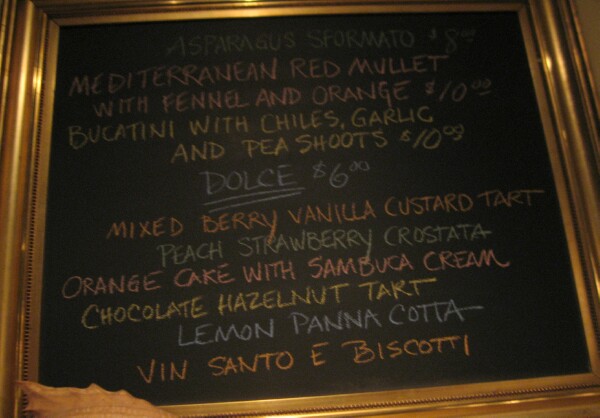 ASPARAGUS SFORMATO $8.00
MEDITERRANEAN RED MULLET
WITH FENNEL AND ORANGE $10.00
BUCATINI WITH CHILES, GARLIC
AND PEA SHOOTS $10.00
DOLCE $6.00
MIXED BERRY VANILLA CUSTARD TART
PEACH STRAWBERRY CROSTATA
ORANGE CAKE WITH SAMBUCA CREAM
CHOCOLATE HAZELNUT TART
LEMON PANNA COTTA
VIN SANTO E BISCOTTI